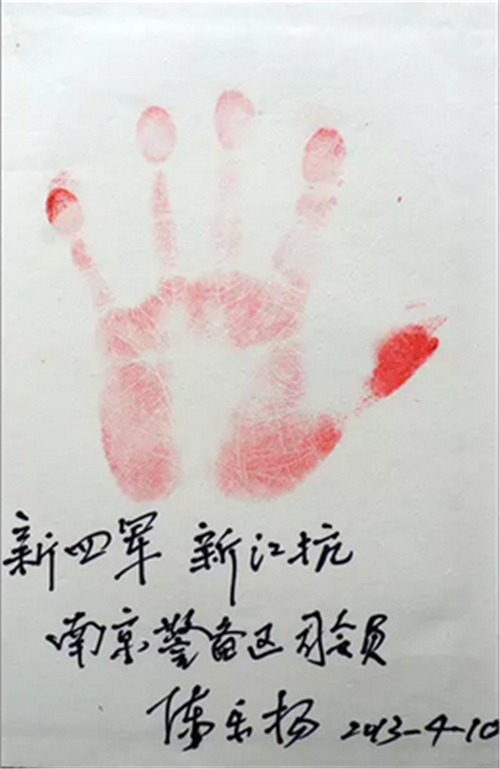 新四军 新江抗
南京警备区司令员
陈乐扬 2013-4-10